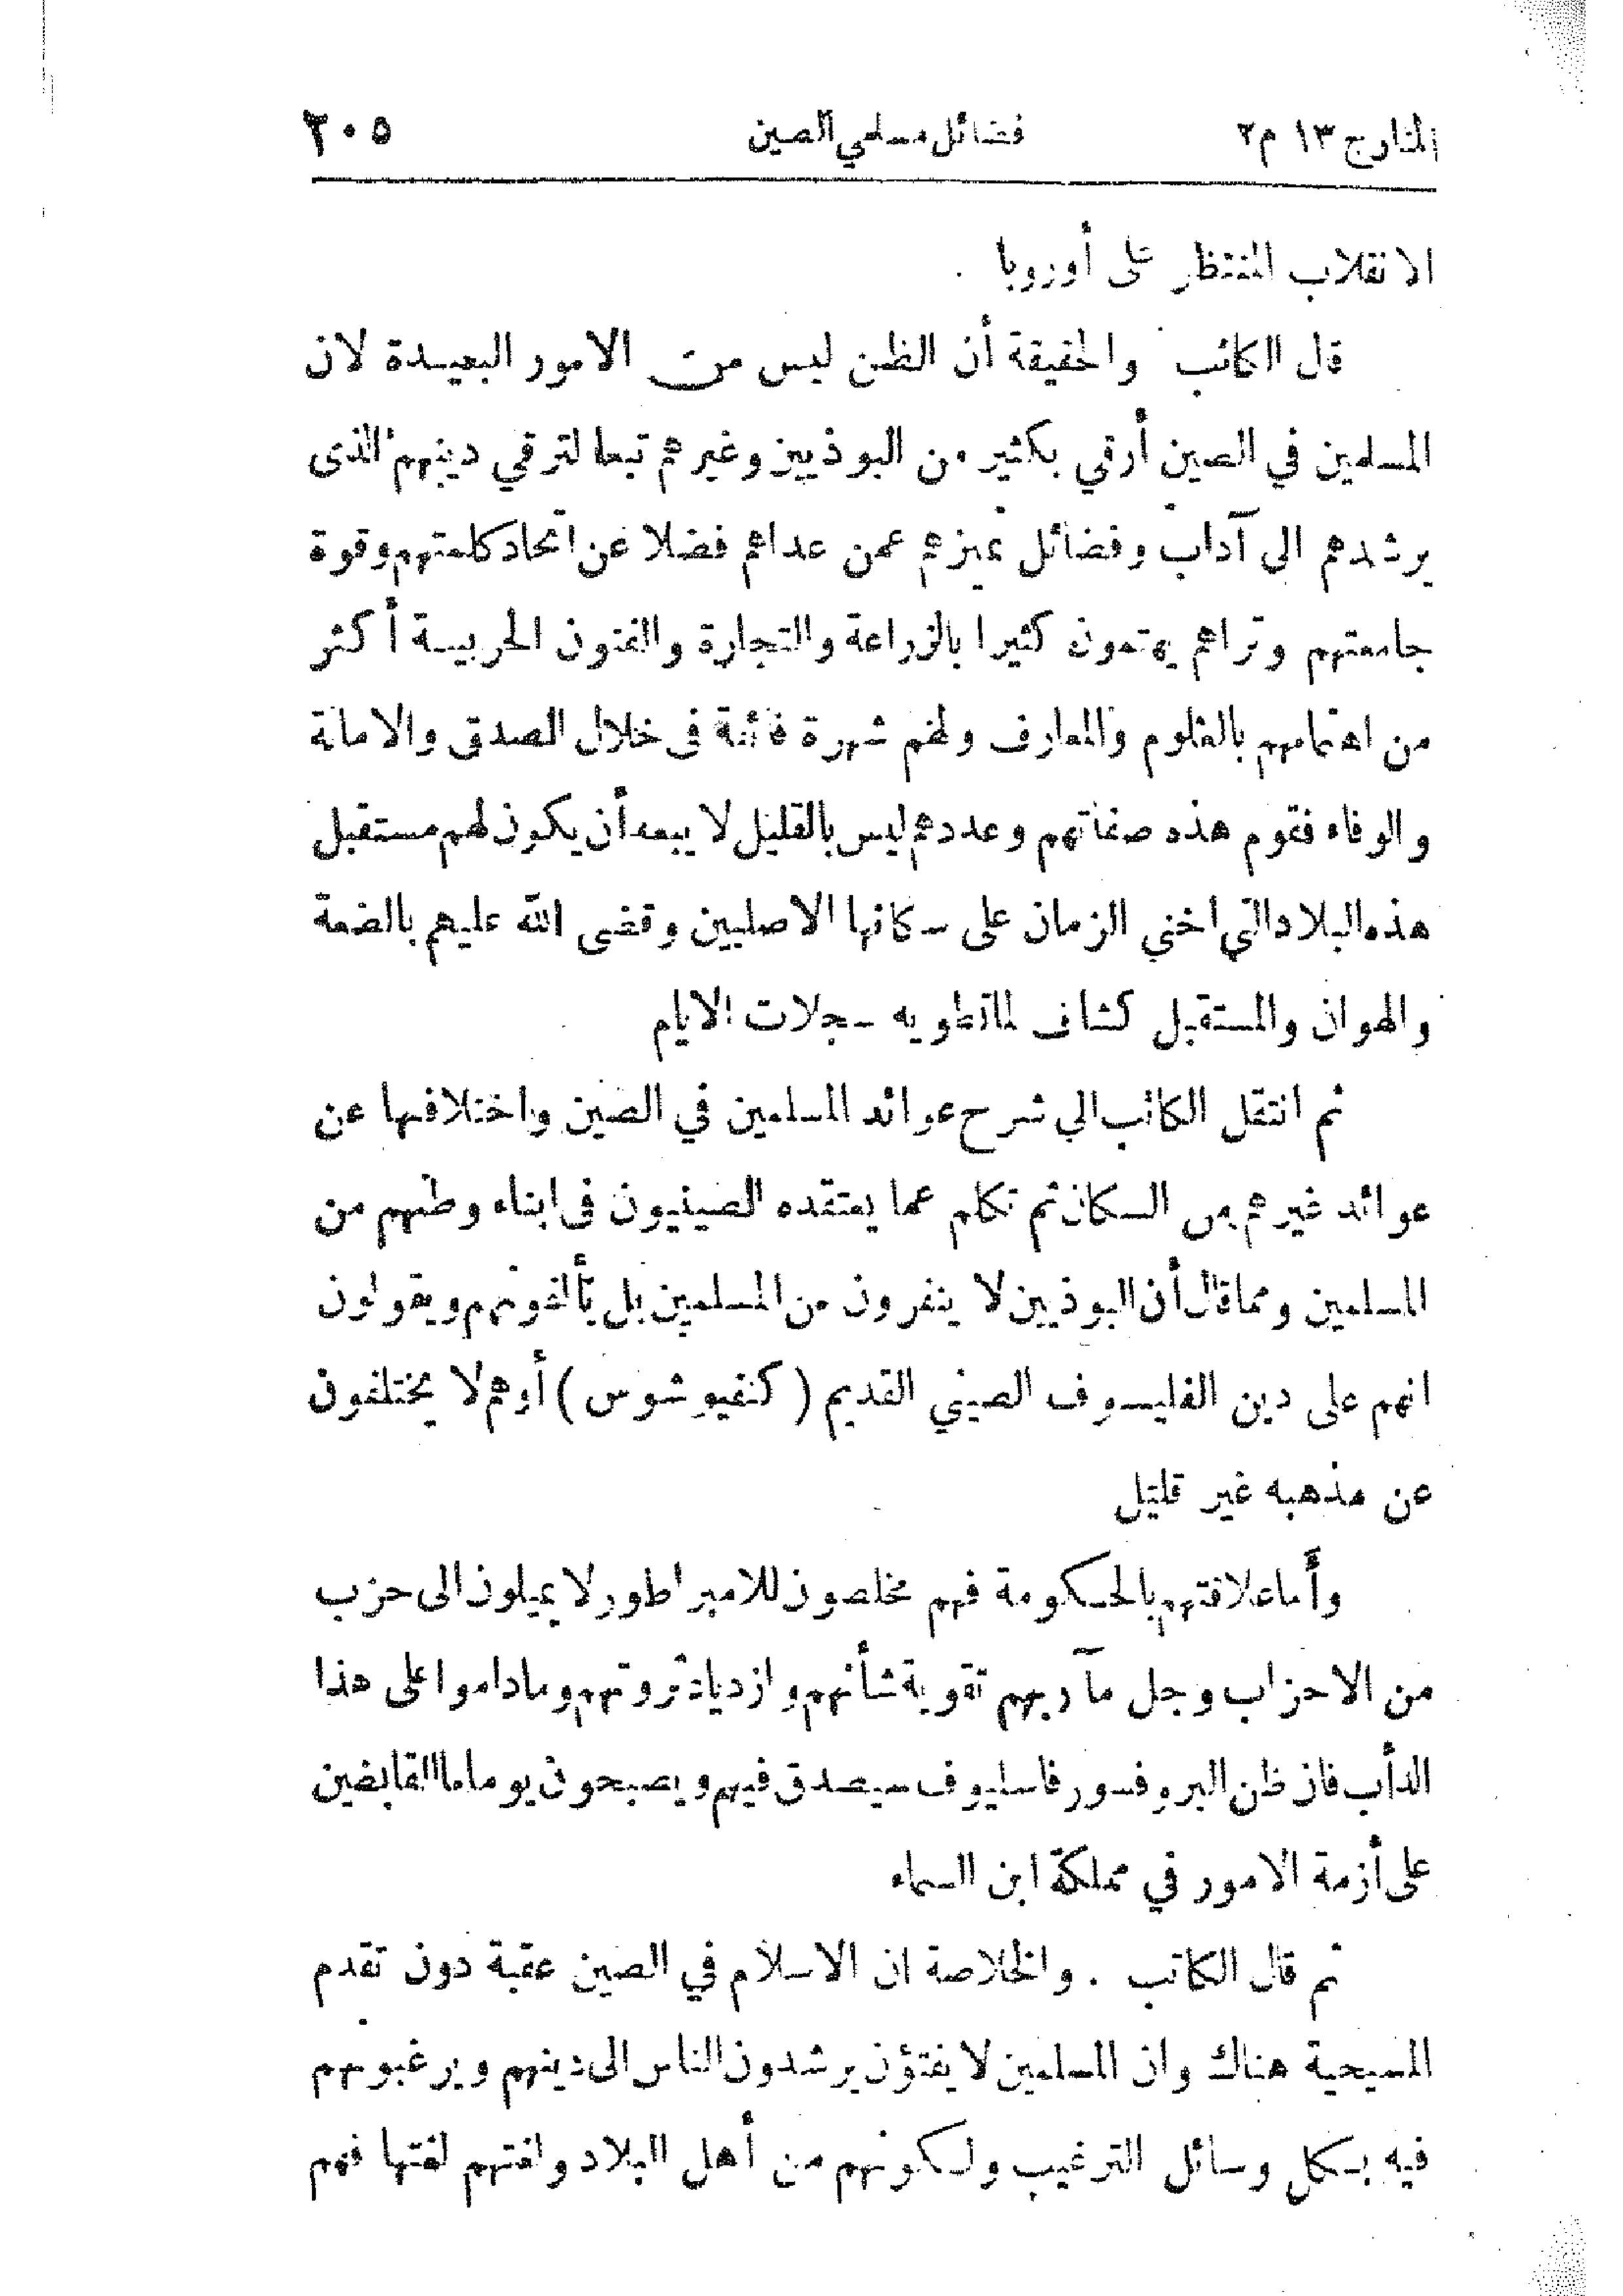 المنار ج ١٣ م ٢ فضائل مسلمي الصين ٢٠٥
الانقلاب المنتظر على أوروبا .
قال الكاتب والحقيقة أن الظن ليس من الامور البعيدة لان
المسلمين في الصين أرقي بكثير من البوذيين وغيرهم تبعا لترقي دينهم الذى
يرشدهم الى آداب وفضائل تميزهم عمن عداهم فضلا عن اتحاد كلمتهم وقوة
جامعتهم وتراهم يهتمون كثيرا بالزراعة والتجارة والفنون الحربية أكثر
من اهتمامهم بالعلوم والمعارف ولهم شهرة فائقة فى خلال الصدق والامانة
والوفاء فقوم هذه صفاتهم وعددهم ليس بالقليل لا يبعد أن يكون لهم مستقبل
هذه البلاد التي اخني الزمان على سكانها الاصليين وقضى الله عليهم بالضعة
والهوان والمستقبل كشاف لما تطويه سجلات الايام
ثم انتقل الكاتب الي شرح عوائد المسلمين في الصين واختلافها عن
عوائد غيرهم من السكان ثم تكلم عما يعتقده الصينيون فى ابناء وطنهم من
المسلمين ومما قال أن البوذيين لا ينفرون من المسلمين بل يألفونهم ويقولون
انهم على دين الفليسوف الصيني القديم ( كنفيوشوس ) أو هم لا يختلفون
عن مذهبه غير قليل
وأما علاقتهم بالحكومة فهم مخلصون للامبراطور لا يميلون الى حزب
من الاحزاب وجل مآربهم تقوية شأنهم وازدياد ثروتهم وما داموا على هذا
الدأب فان ظن البروفسور فاسليوف سيصدق فيهم ويصبحون يوما ما القابضين
على أزمة الامور في مملكة ابن السماء
ثم قال الكاتب . والخلاصة ان الاسلام في الصين عقبة دون تقدم
المسيحية هناك وان المسلمين لا يفتؤن يرشدون الناس الى دينهم ويرغبونهم
فيه بكل وسائل الترغيب ولكونهم من أهل البلاد ولغتهم لغتها فهم